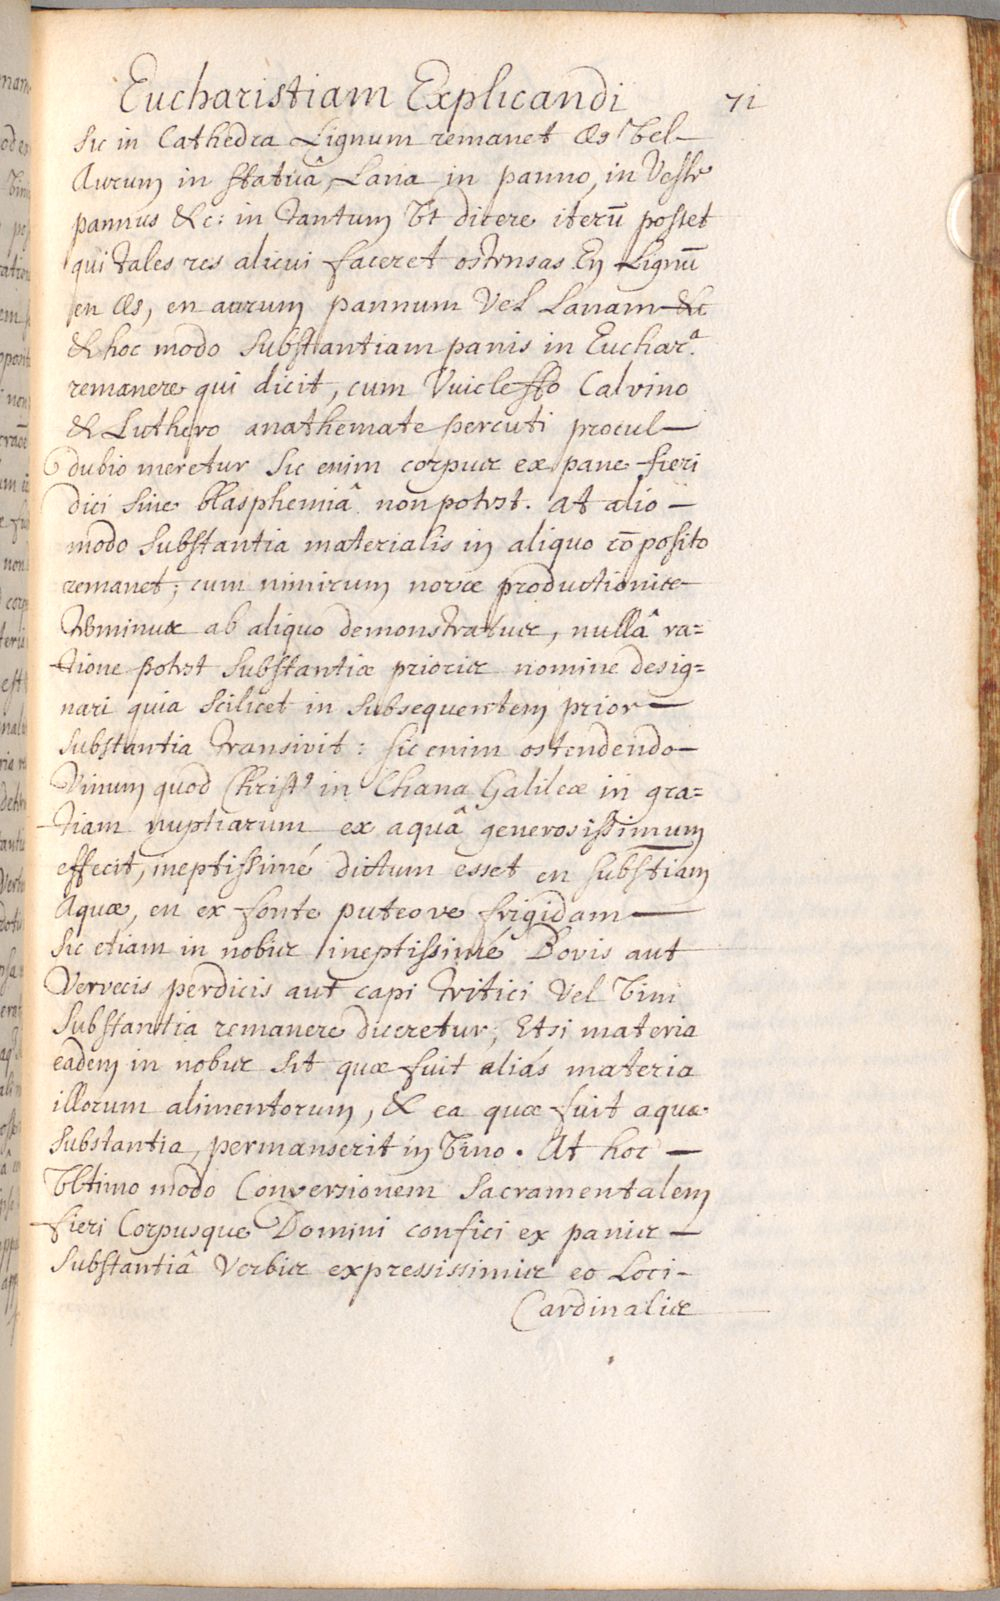 Eucharistiam Explicandi 71
Sic in Cathedra Lignum remanet æs vel —
Aurum in statuâ, Lana in panno, in Veste
pannus &c: in tantum Vt dicere iterū posset
qui tales res alicui faceret ostensas En Lignū
en æs, en aurum pannum Vel Lanam &c
& hoc modo Substantiam panis in Eucharᵃ.
remanere qui dicit, cum Vuicleffo Calvino
& Luthero anathemate percuti procul —
dubio meretur Sic enim corpus ex pane fieri
dici Sine blasphemiâ non potest. At alio —
modo Substantia materialis in aliquo cōposito
remanet; cum nimirum novæ productionis
terminus ab aliquo demonstratur, nullâ ra=
tione potest Substantiæ prioris nomine desig=
nari quia Scilicet in Subsequentem prior —
Substantia transivit: Sic enim ostendendo —
Vinum quod Christ⁹ in Chana Galilææ in gra=
tiam nuptiarum ex aquâ generosissimum
effecit, ineptissimé dictum esset en Substiam
Aquæ, en ex fonte puteove frigidam —
Sic etiam in nobis ineptissimé Bovis aut
Vervecis perdicis aut capi tritici Vel Vini
Substantia remanere diceretur; Etsi materia
eadem in nobis Sit quæ fuit aliás materia
illorum alimentorum, & ea quæ fuit aquæ
Substantia, permanserit in Vino. At hoc —
Vltimo modo Conversionem Sacramentalem
fieri Corpusque Domini confici ex panis —
Substantiâ Verbis expressissimis eo Loci —
Cardinalis